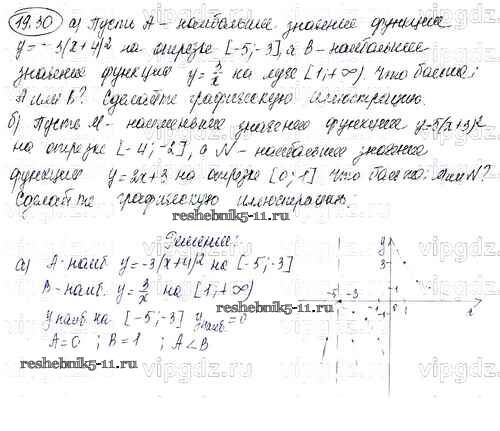 19.30 а) Пусть A - наибольшее значение функции
y = -3(x+4)² на отрезке [-5;-3], а B - наибольшее
значение функции y = 3/x на луче [1;+∞). Что больше:
A или B? Сделайте графическую иллюстрацию.
б) Пусть M - наименьшее значение функции y=5(x+3)²
на отрезке [-4;-2], а N - наибольшее значение
функции y=2x+3 на отрезке [0;1]. Что больше: M или N?
Сделайте графическую иллюстрацию.
www.reshebnik5-11.ru
Решение:
а) A-наиб y=-3(x+4)² на [-5;-3]
B-наиб. y=3/x на [1;+∞)
www.reshebnik5-11.ru
y наиб на [-5;-3] y наиб. = 0
A=0 ; B=1 ; A<B
y
3
-5 -3
1
1
x
vipgdz.ru